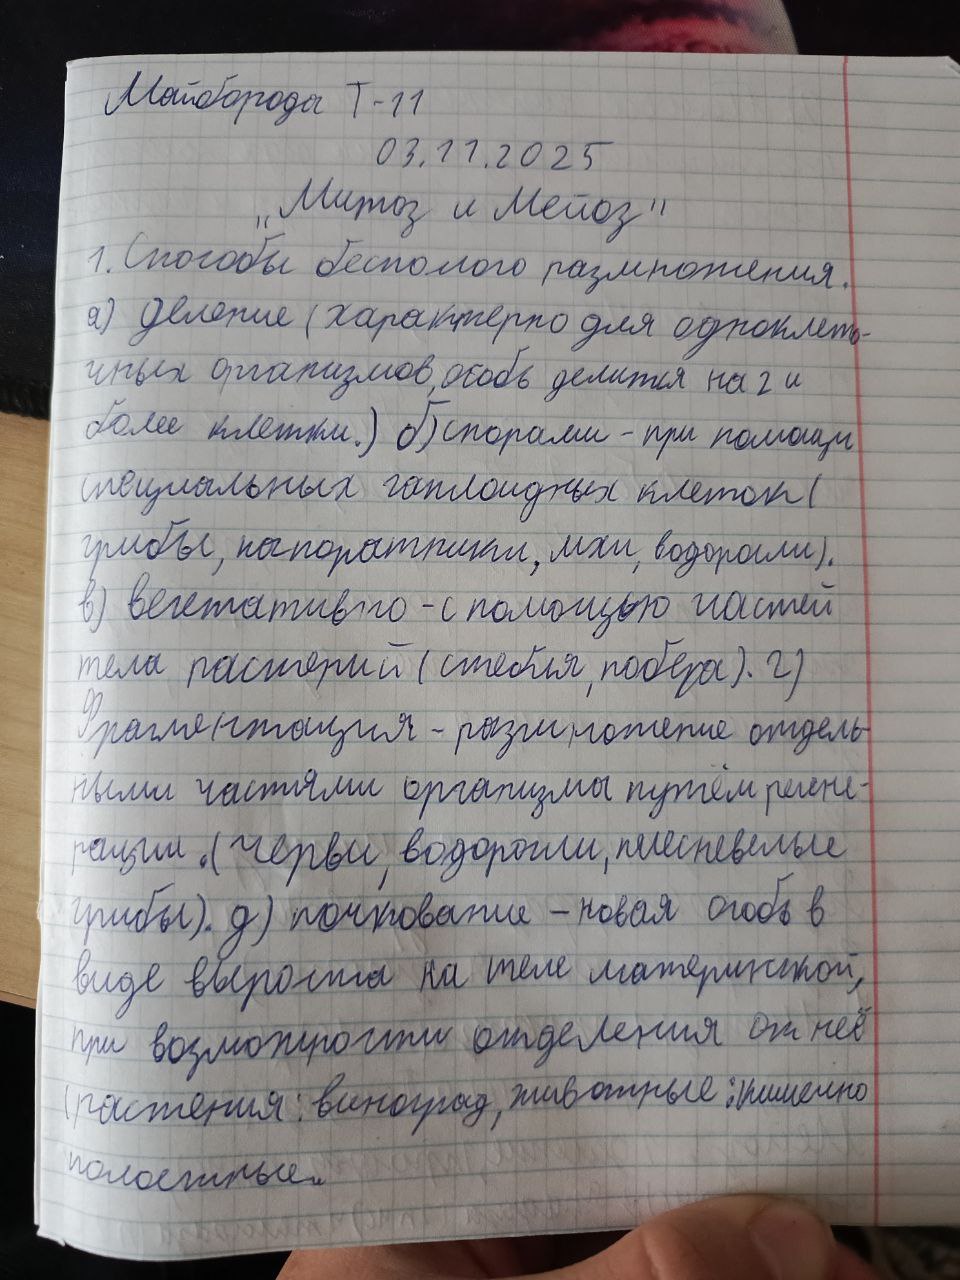 Майборода Т-11
03.11.2025
„Митоз и Мейоз"
1. Способы бесполого размножения.
а) деление (характерно для одноклеть-
чных организмов, особь делится на 2 и
более клетки.) б) спорами - при помощи
специальных гаплоидных клеток (
грибы, папоратники, мхи, водоросли).
в) вегетативно - с помощью частей
тела растений (стебля, побега). г)
Фрагментация - размножение отдель-
ными частями организмы путём регене-
рации. (черви, водоросли, плесневелые
грибы). д) почкование - новая особь в
виде выроста на теле материнской,
при возможности отделения от неё
(растения: виноград, животные: кишечно
полостные.